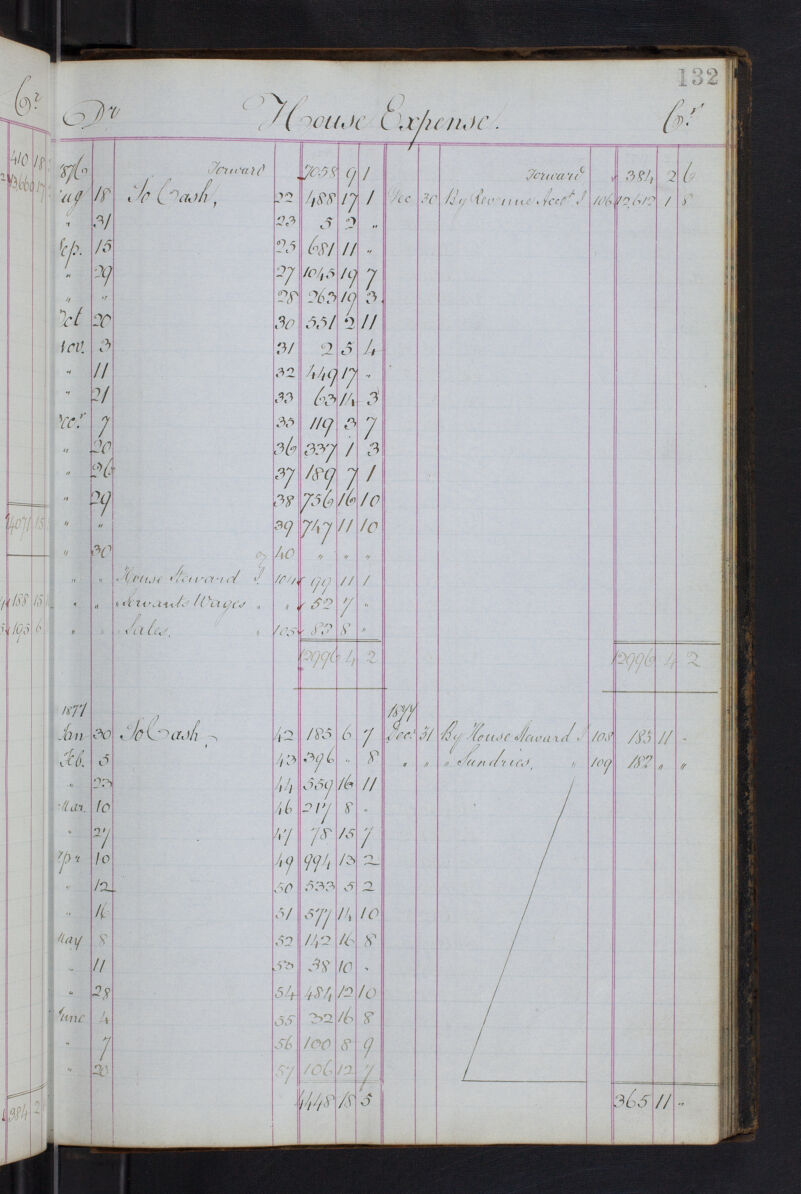 132
Cr
Dr House Expense. Cr
410 18
1876 Forward 7058 9 1 Forward 384 2 6
Aug 18 To Cash, 22 488 17 1 Dec 30 By Revenue Acct J 106 12,612 1 8
" 31 23 5 2 "
Sep. 15 25 681 11 "
" 29 27 1045 19 7
" " 28 263 19 3
Oct 20 30 551 2 11
Nov. 3 31 2 5 4
" 11 32 449 17 "
" 21 33 63 14 3
Decr 7 35 119 3 7
" 20 36 337 1 3
" 26 37 189 7 1
" 29 38 756 16 10
" " 39 747 11 10
" 30 40 " " "
" " House Steward J 104 99 11 1
" " Servants Wages " " 52 7 "
" " Sales. " 105 83 8 "
12996 4 2 12996 4 2
1877 1877
Jan 30 To Cash 42 185 6 7 Decr 31 By House Steward J 108 183 11 -
Feb. 5 43 396 " 8 " " " Sundries, " 109 182 " "
" 23 44 559 16 11
Mar. 10 46 217 8 "
" 27 47 78 15 7
Apr 10 49 994 13 2
" 12 50 533 5 2
" 16 51 577 14 10
May 8 52 142 16 8
" 11 53 38 10 "
" 28 54 484 12 10
June 4 55 32 16 8
" 7 56 100 8 9
" 20 57 106 12 7
4448 18 5 365 11 "